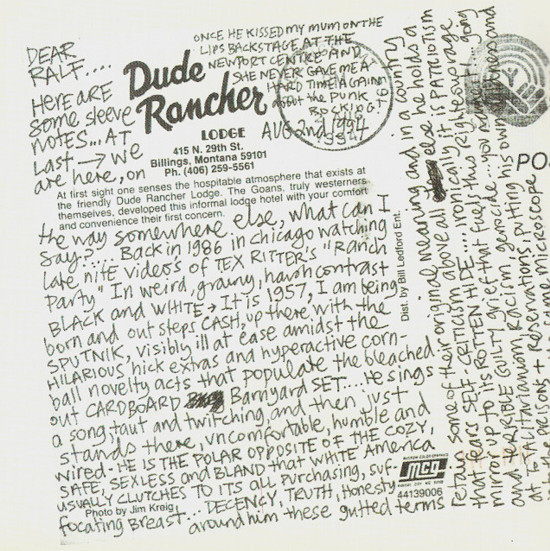 DEAR
RALF....
HERE ARE
some sleeve
NOTES... AT
LAST → we
are here, on
ONCE HE KISSED MY MUM ON THE
LIPS BACKSTAGE AT THE
NEWPORT CENTRE AND
SHE NEVER GAVE ME A
HARD TIME AGAIN
about the PUNK
ROCKING!
AUG 2nd 1994
Dude
Rancher
LODGE
415 N. 29th St.
Billings, Montana 59101
Ph. (406) 259-5561
At first sight one senses the hospitable atmosphere that exists at
the friendly Dude Rancher Lodge. The Goans, truly westerners
themselves, developed this informal lodge hotel with your comfort
and convenience their first concern.
the way somewhere else, what can I
say?.... Back in 1986 in chicago watching
late nite videos of TEX RITTER'S "Ranch
Party" In weird, grainy, harsh contrast
BLACK and WHITE → It is 1957, I am being
born and out steps CASH, up there with the
SPUTNIK, visibly ill at ease amidst the
HILARIOUS hick extras and hyperactive corn-
ball novelty acts that populate the bleached
out CARDBOARD Barnyard SET.... He sings
a song, taut and twitching, and then just
stands there, uncomfortable, humble and
wired - HE IS THE POLAR OPPOSITE OF THE COZY,
SAFE, SEXLESS and BLAND that WHITE America
usually clutches to its all purchasing, suf-
focating Breast... DECENCY, TRUTH, Honesty
around him these gutted terms
Photo by Jim Kreig
Dist. by Bill Ledford Ent.
MCG
44139006
PO
retain some of their original meaning and in a country
that fears SELF-CRITICISM above all else he holds a
mirror up to its ROTTEN HIDE.... Ironically it is PATRIOTISM
and TERRIBLE GUILTY grief that fuels this righteous rage
at totalitarianism, racism, genocide... you
prisons + Reservations, putting its own